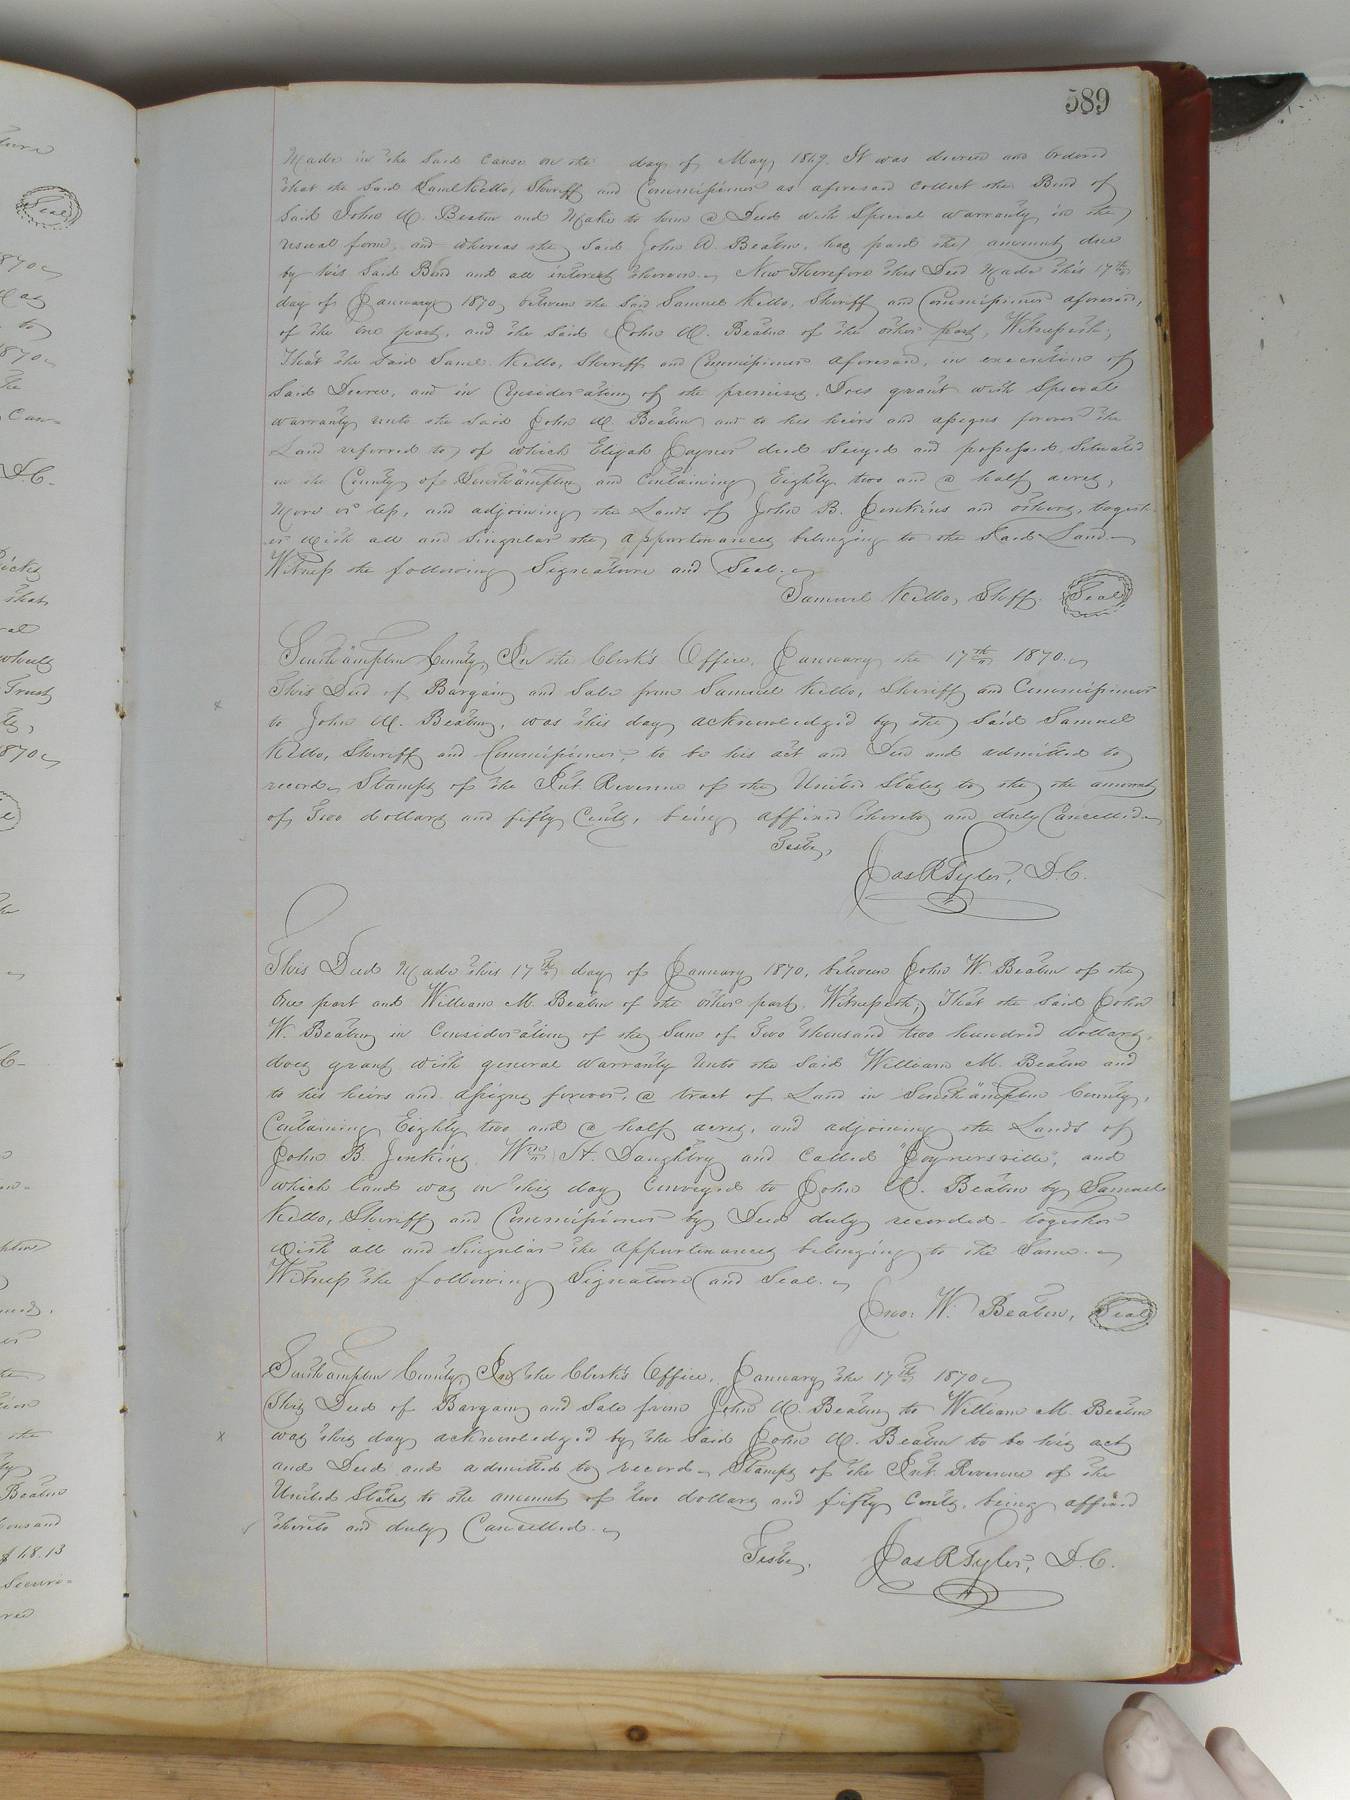 589
Made in the Said Cause on the day of May, 1869. It was decreed and Ordered
that the Said Saml Kello, Sheriff and Commissioner as aforesaid collect the Bond of
Said John W. Beaton and Make to him a Deed with Special warranty in the
usual form, and whereas the Said John W. Beaton, has paid the amount due
by his Said Bond and all interest thereon. Now Therefore this Deed Made this 17th
day of January 1870, between the Said Samuel Kello, Sheriff and Commissioner aforesaid,
of the One part, and the Said John W. Beaton of the other part, Witnesseth,
That the Said Saml. Kello, Sheriff and Commissioner aforesaid, in execution of
Said Decree, and in Consideration of the premises, Does grant with Special
warranty unto the Said John W. Beaton and to his heirs and assigns forever the
Land referred to, of which Elijah Joyner died Seized and possessed, Situated
in the County of Southampton and Containing Eighty two and a half acres,
More or less, and adjoining the Lands of John B. Jenkins and others, togeth-
er with all and Singular the appurtenances belonging to the Said Land.
Witness the following Signature and Seal.
Samuel Kello, Shff. Seal
Southampton County, In the Clerk's Office, January the 17th 1870.
This Deed of Bargain and Sale from Samuel Kello, Sheriff and Commissioner
to John W. Beaton, was this day acknowledged by the Said Samuel
Kello, Sheriff and Commissioner, to be his act and Deed and admitted to
record. Stamps of the Int. Revenue of the United States to the the amount
of Two dollars and fifty Cents, being affixed thereto and duly Cancelled.
Teste,
Jas R Tyler, D.C.
This Deed Made this 17th day of January 1870, between John W. Beaton of the
One part and William M. Beaton of the other part, Witnesseth, That the Said John
W. Beaton in Consideration of the Sum of Two thousand two hundred dollars,
does grant with general warranty unto the Said William M. Beaton and
to his heirs and assigns forever, a tract of Land in Southampton County,
Containing Eighty two and a half acres, and adjoining the Lands of
John B. Jenkins, Wm H. Daughtry and Called "Joynersville", and
which land was on this day Conveyed to John W. Beaton by Samuel
Kello, Sheriff and Commissioner by Deed duly recorded. together
with all and Singular the appurtenances belonging to the Same.
Witness the following Signature and Seal.
Jno. W. Beaton, Seal
Southampton County, In the Clerk's Office, January the 17th 1870.
This Deed of Bargain and Sale from John W. Beaton to William M. Beaton
was this day acknowledged by the Said John W. Beaton to be his act
and Deed and admitted to record. Stamps of the Int. Revenue of the
United States to the amount of two dollars and fifty Cents, being affixed
thereto and duly Cancelled.
Teste, Jas R Tyler, D.C.